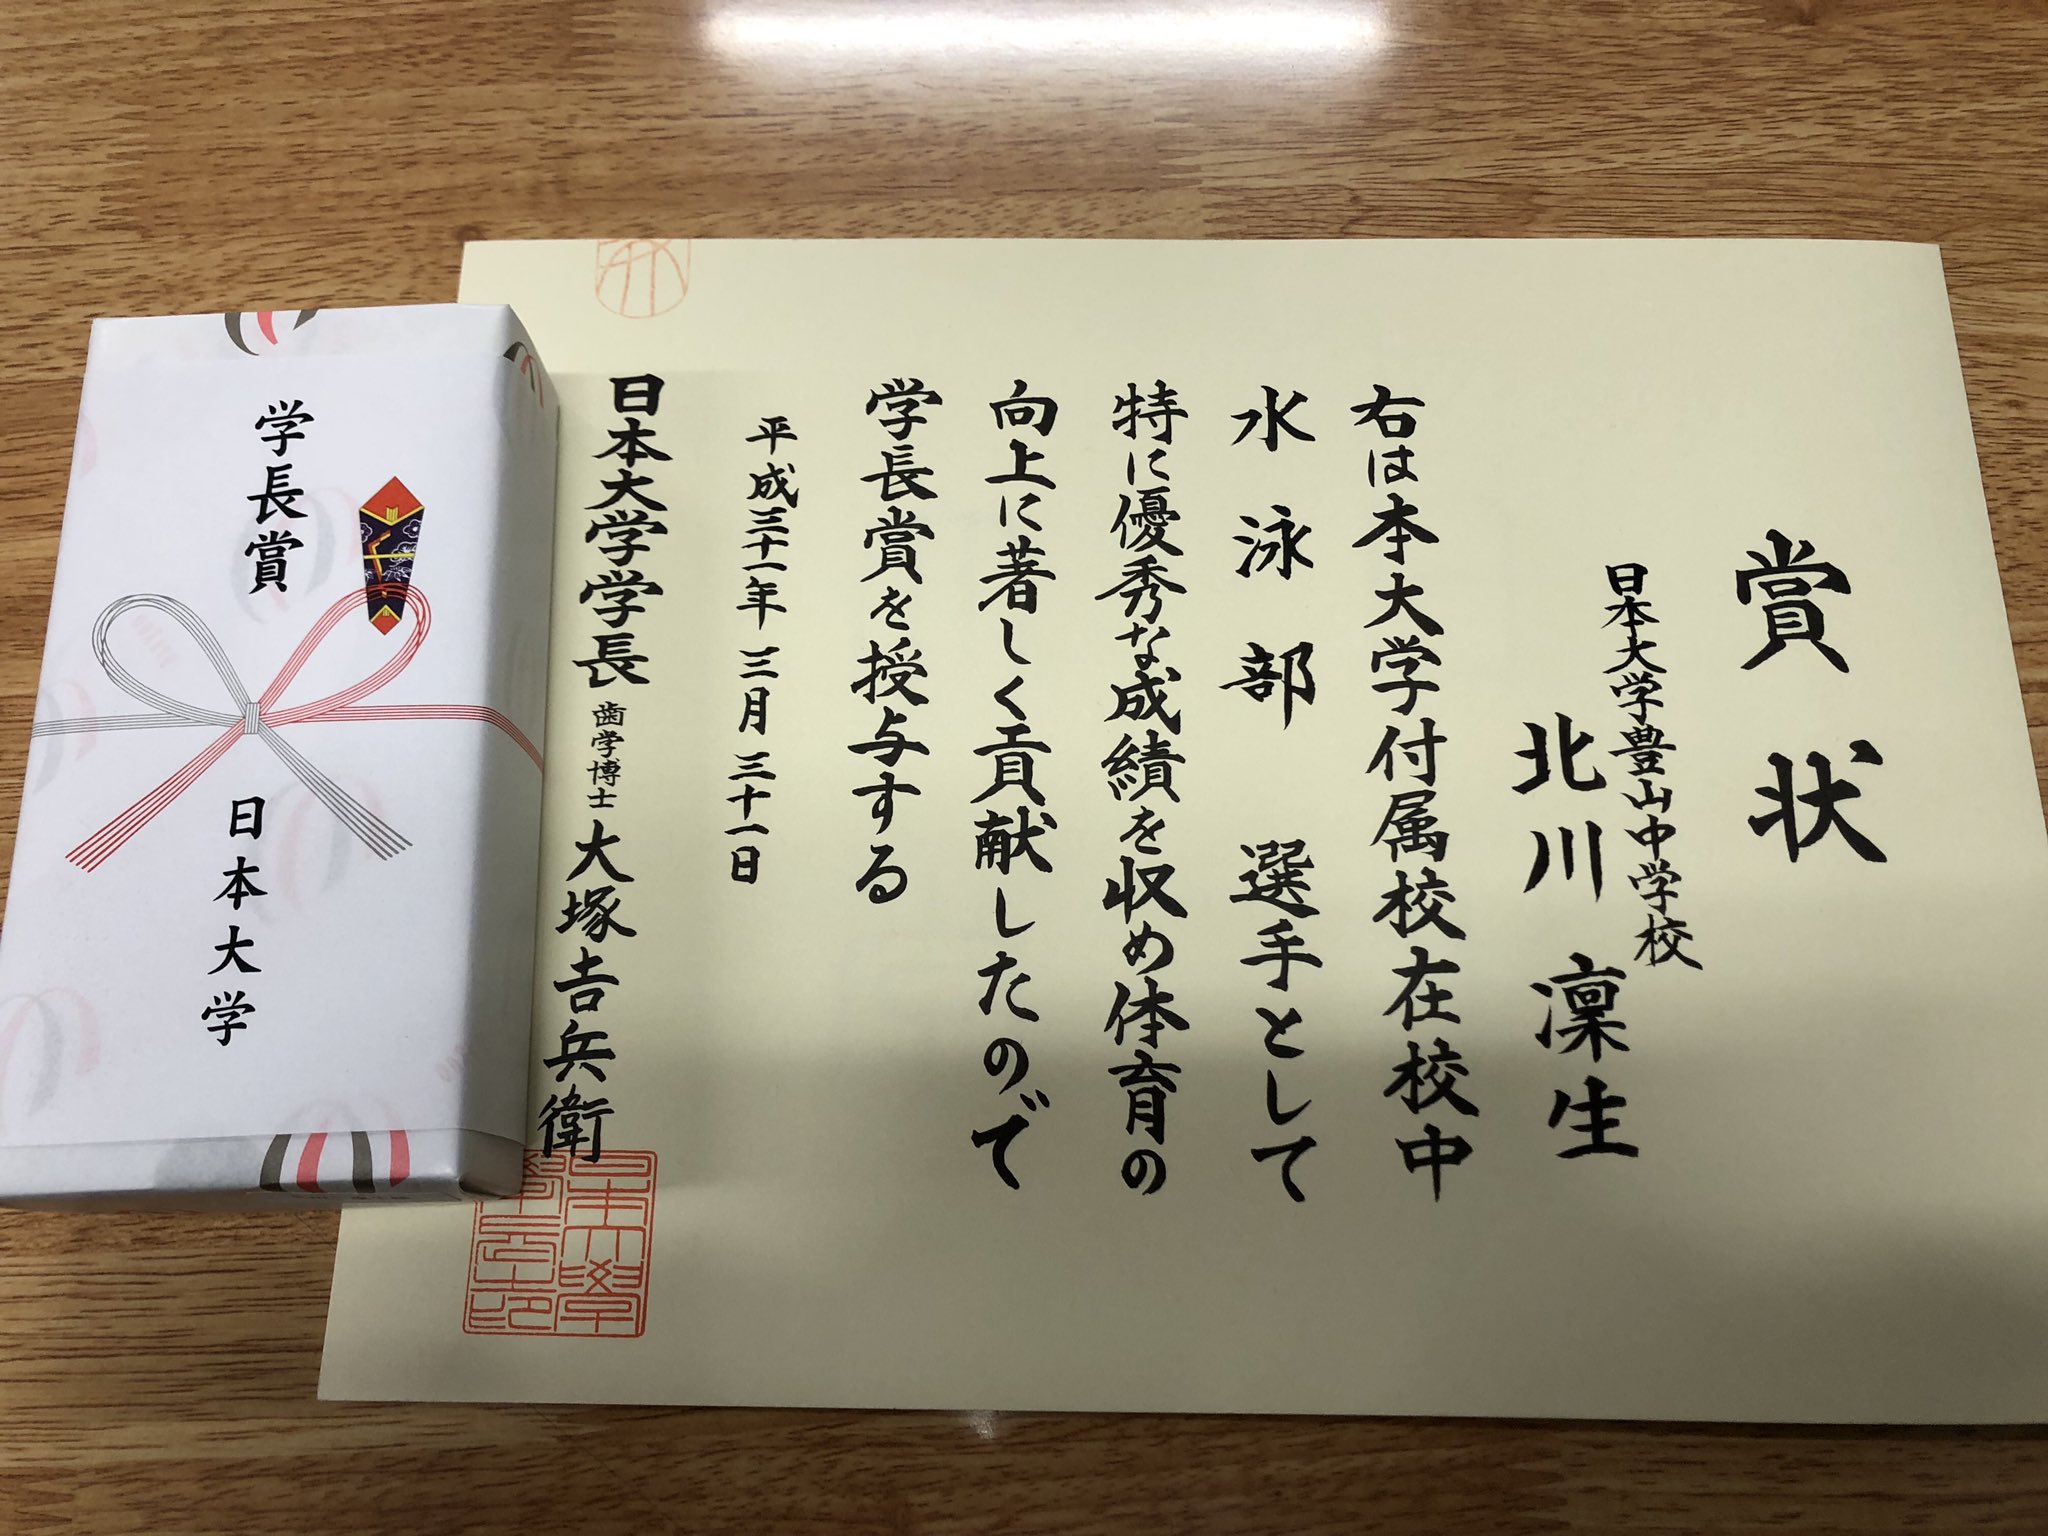 賞状
日本大学豊山中学校
北川凛生
右は本大学付属校在校中
水泳部 選手として
特に優秀な成績を収め体育の
向上に著しく貢献したので
学長賞を授与する
平成三十一年三月三十一日
日本大学学長 歯学博士 大塚𠮷兵衛
学長賞
日本大学